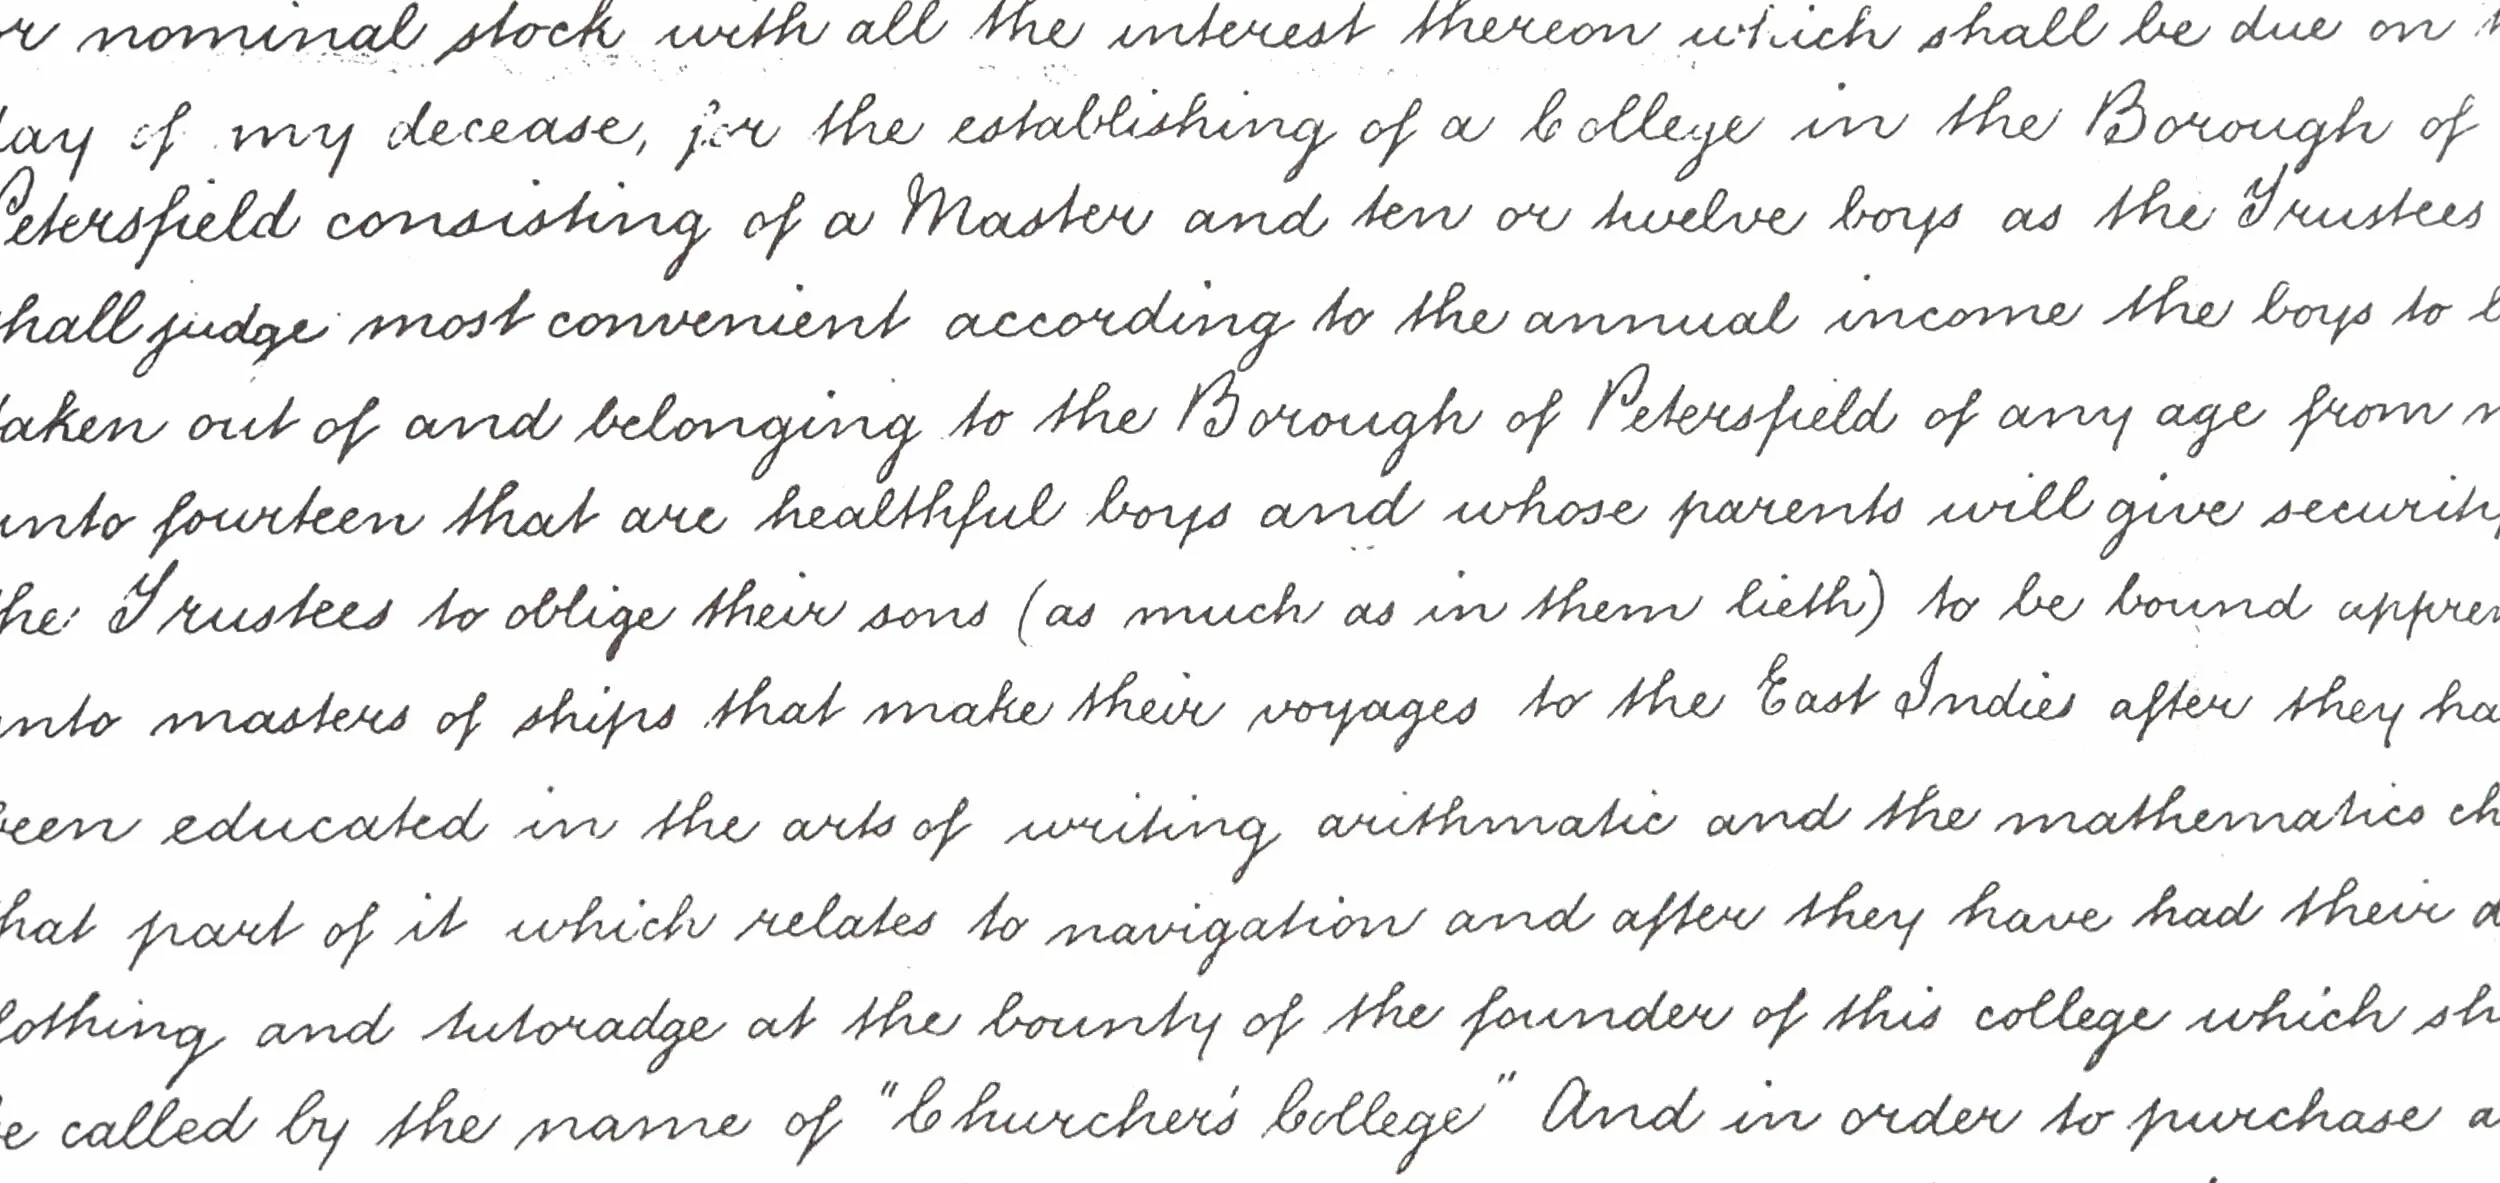 r nominal stock with all the interest thereon which shall be due on
ay of my decease, for the establishing of a College in the Borough of
Petersfield consisting of a Master and ten or twelve boys as the Trustees
hall judge most convenient according to the annual income the boys to b
aken out of and belonging to the Borough of Petersfield of any age from n
unto fourteen that are healthful boys and whose parents will give security
he Trustees to oblige their sons (as much as in them lieth) to be bound appren
nto masters of ships that make their voyages to the East Indies after they ha
een educated in the arts of writing arithmatic and the mathematics ch
hat part of it which relates to navigation and after they have had their d
lothing and tutoradge at the bounty of the founder of this college which sh
e called by the name of "Churcher's College" And in order to purchase a